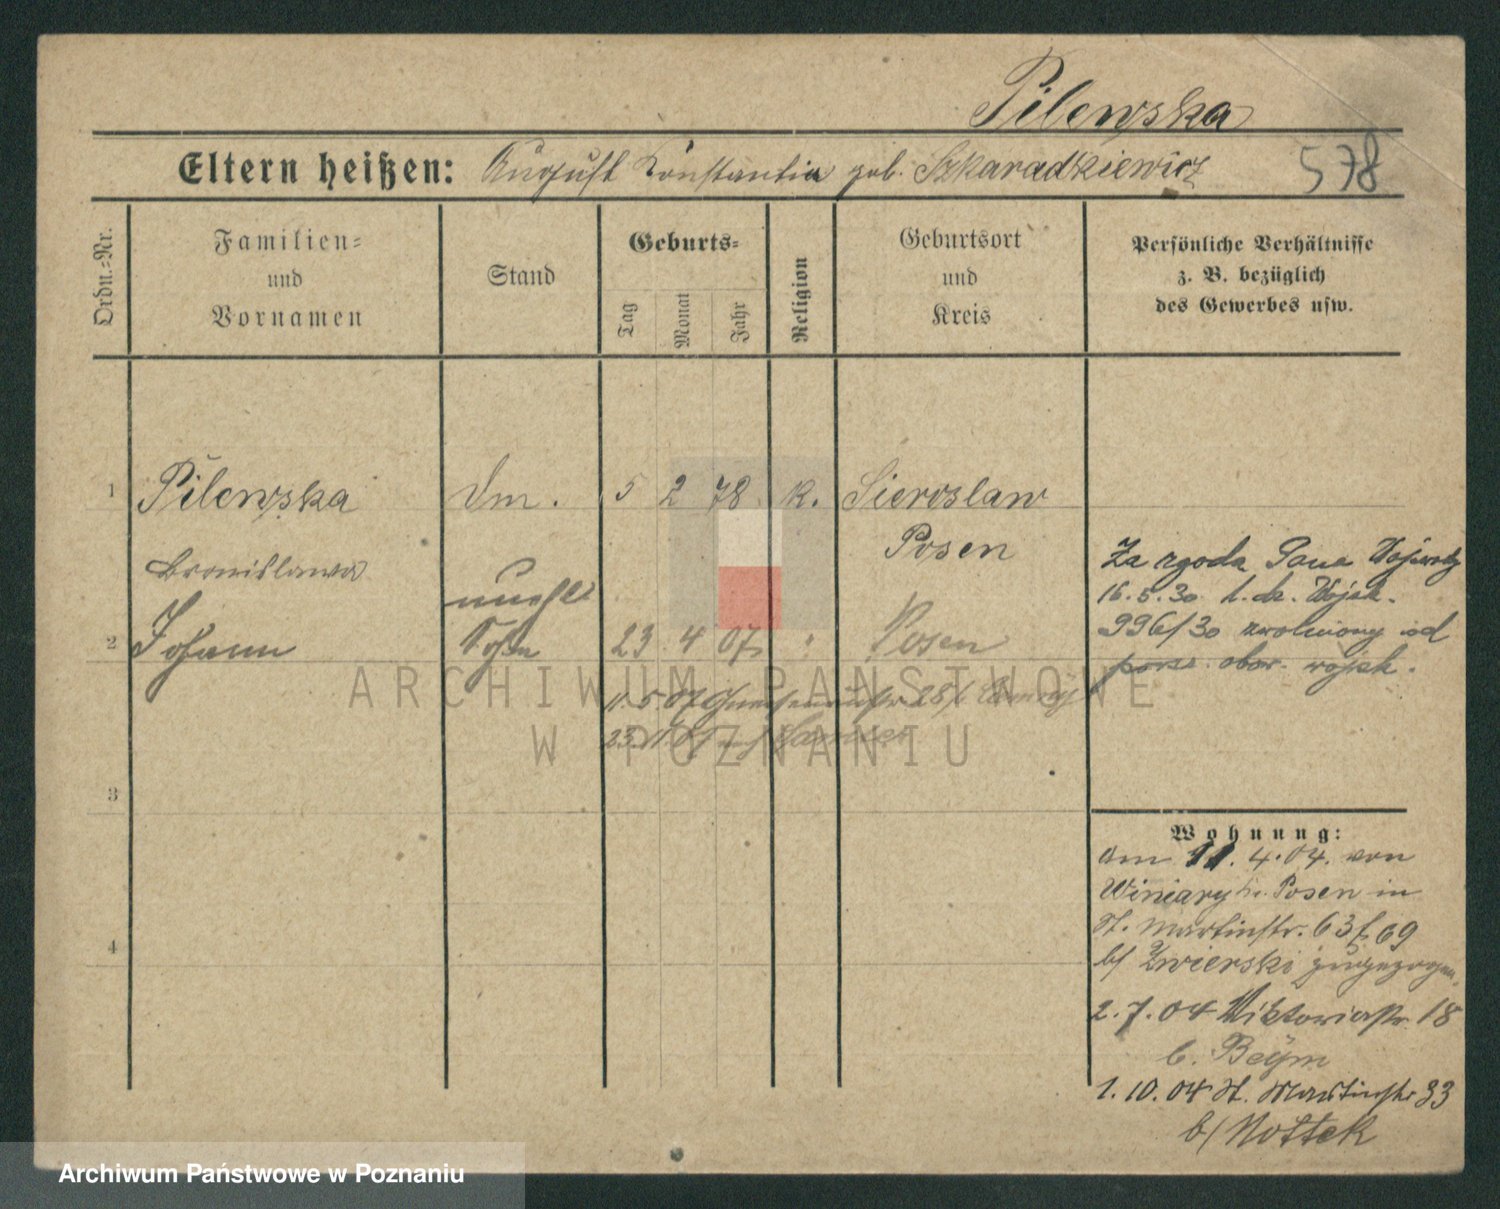 Pilewska
Eltern heißen: August Konstantia geb. Szkaradkiewicz
578
Ordn.=Nr.
Familien=
und
Vornamen
Stand
Geburts=
Tag
Monat
Jahr
Religion
Geburtsort
und
Kreis
Persönliche Verhältnisse
z. B. bezüglich
des Gewerbes usw.
1 Pilewska Dm. 5 2 78 k. Sieroslaw
Posen
Bronislawa
2 Johann Sohn 23 4 07 Posen
11.5.07
28
Za zgodą Pana
16.5.30 l. dz. Wojsk.
996/30 zwolniony od
pow. obow. wojsk.
3
4
Wohnung:
am 11.4.04. von
Winiary b. Posen in
St. Martinstr. 63 69
b/ Zwierski zugezogen.
2.7.04 Viktoriastr. 18
b. Beym
1.10.04 St. Martinstr 33
b/ Nottek
ARCHIWUM PAŃSTWOWE
W POZNANIU
Archiwum Państwowe w Poznaniu